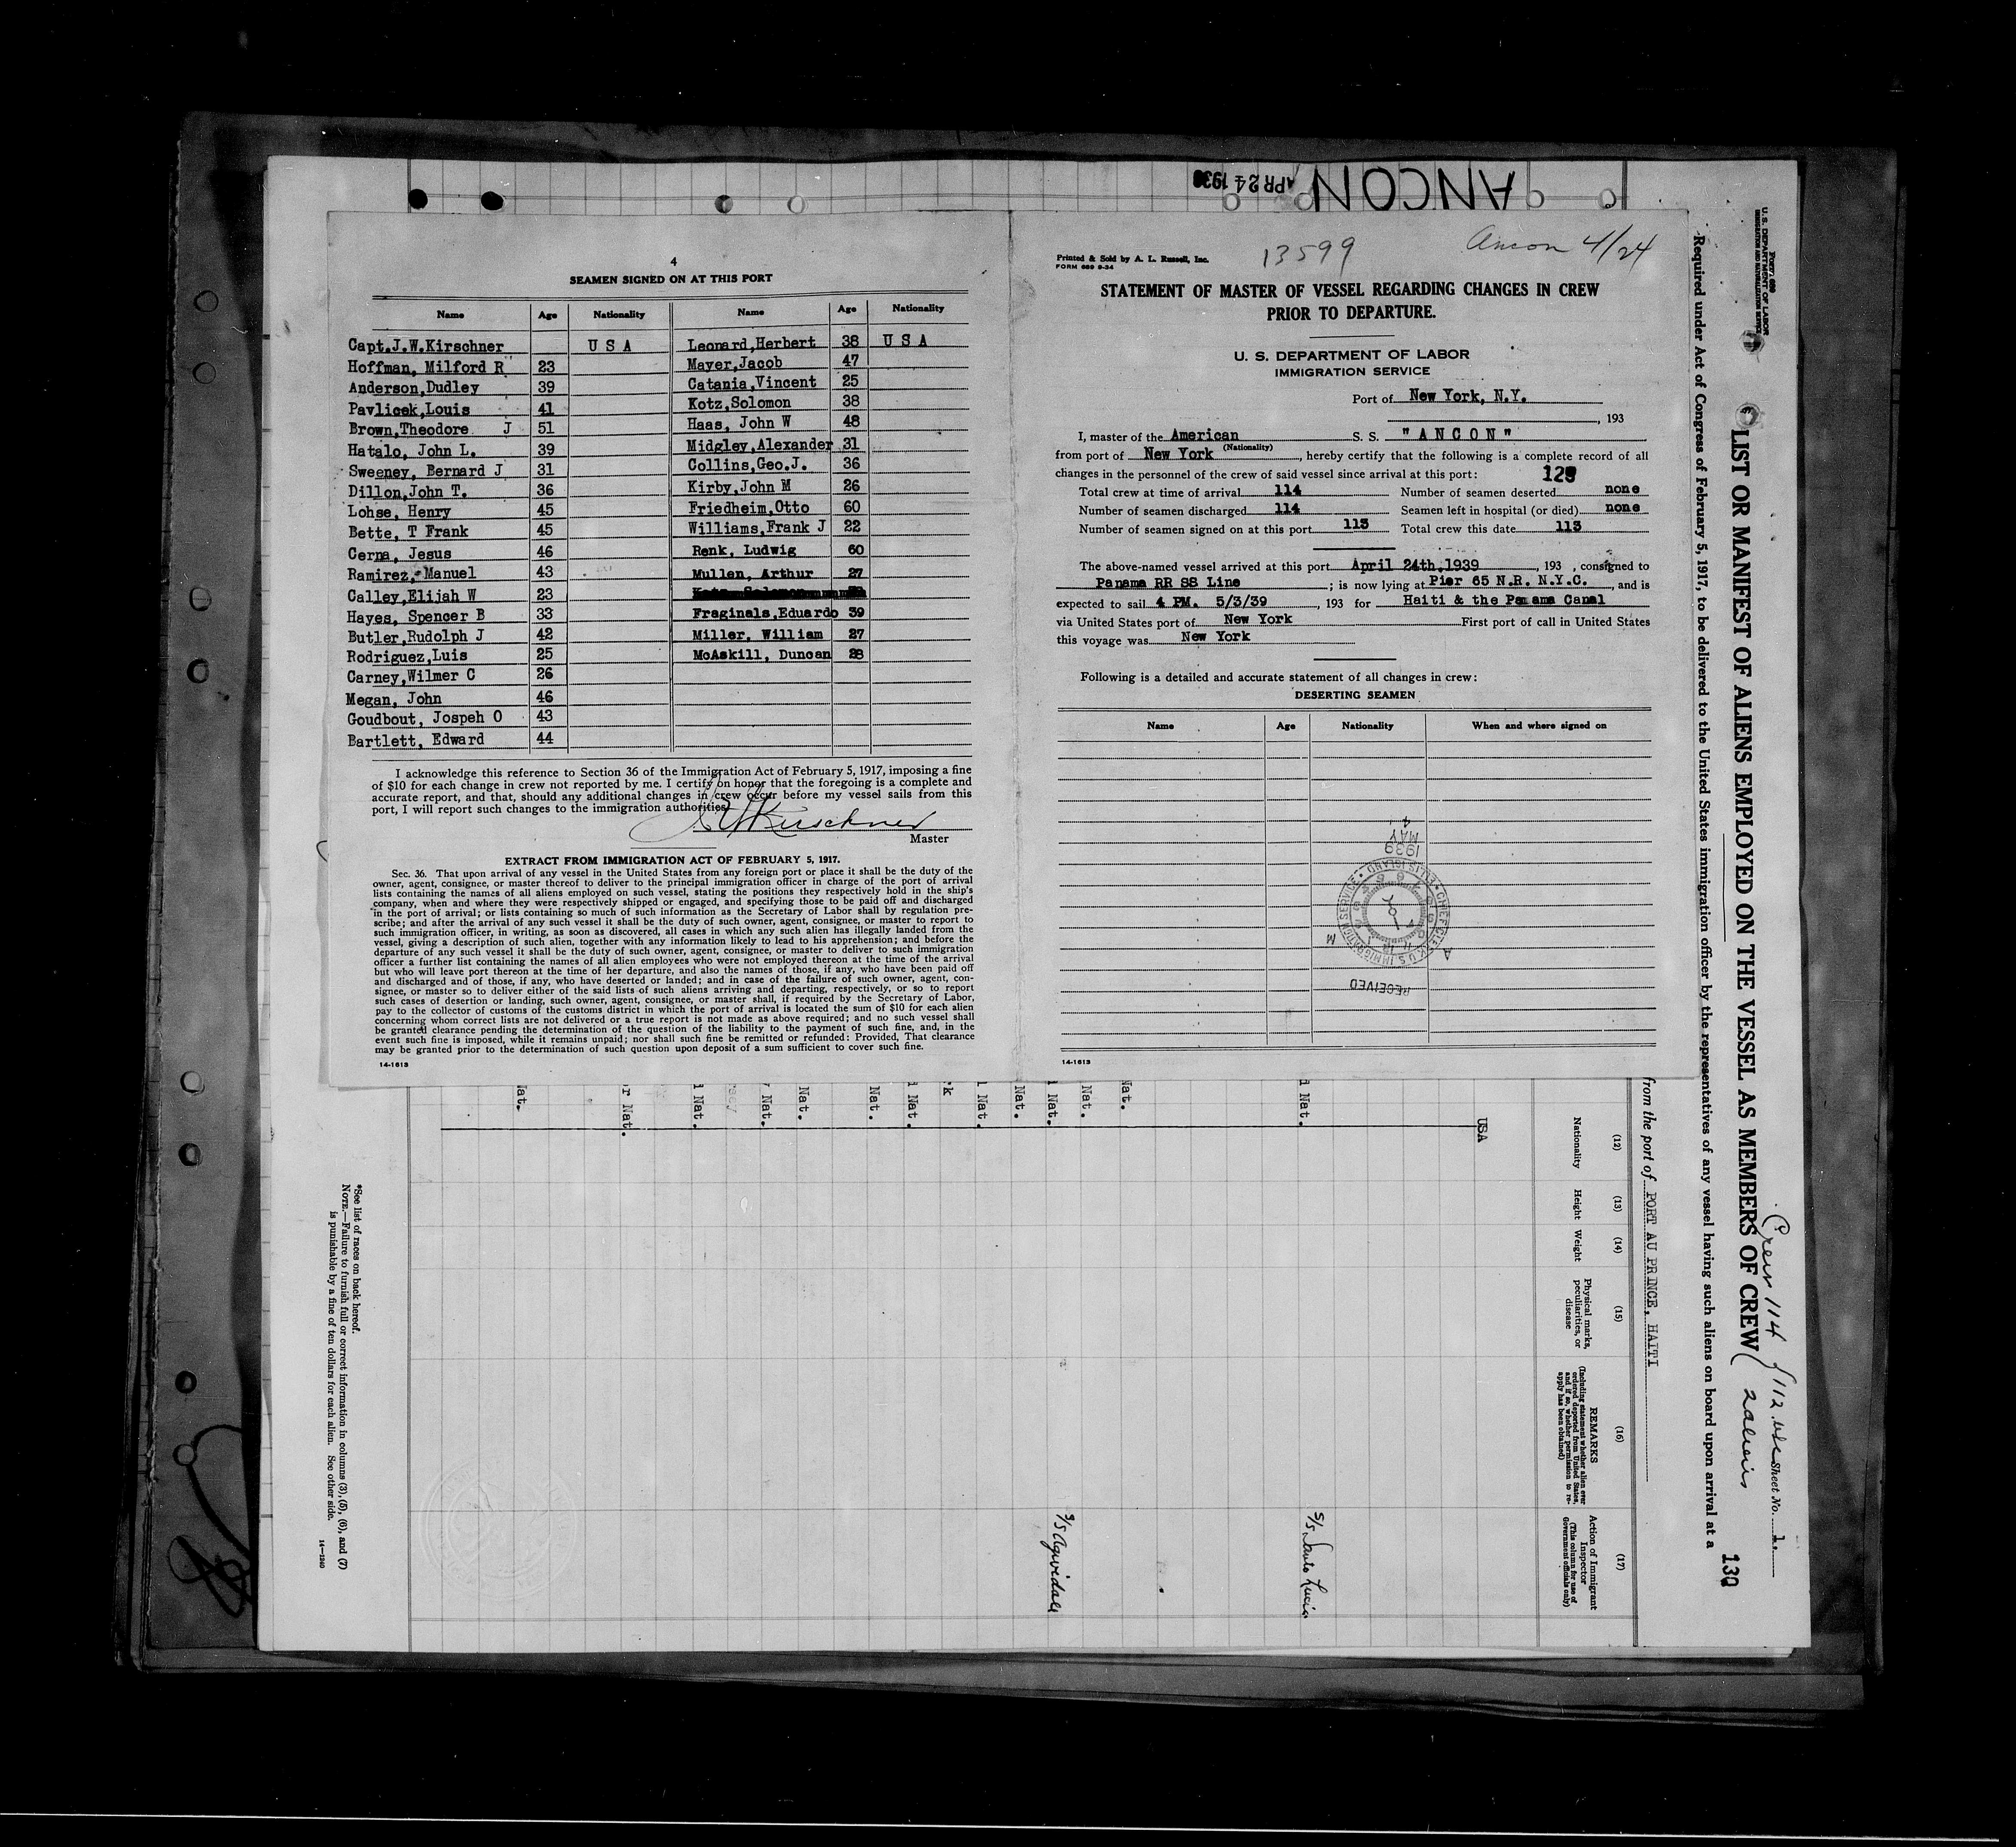 ANCON
APR 24 1939
4
SEAMEN SIGNED ON AT THIS PORT
Name Age Nationality Name Age Nationality
Capt.J.W.Kirschner U S A Leonard,Herbert 38 U S A
Hoffman, Milford R 23 Mayer,Jacob 47
Anderson,Dudley 39 Catania,Vincent 25
Pavlicek,Louis 41 Kotz,Solomon 38
Brown,Theodore J 51 Haas, John W 48
Hatalo, John L. 39 Midgley,Alexander 31
Sweeney, Bernard J 31 Collins,Geo.J. 36
Dillon,John T. 36 Kirby,John M 26
Lohse, Henry 45 Friedheim,Otto 60
Bette, T Frank 45 Williams,Frank J 22
Cerna, Jesus 46 Renk, Ludwig 60
Ramirez, Manuel 43 Mullen, Arthur 27
Calley,Elijah W 23
Hayes, Spencer B 33 Fraginals,Eduardo 39
Butler,Rudolph J 42 Miller, William 27
Rodriguez,Luis 25 McAskill, Duncan 28
Carney,Wilmer C 26
Megan, John 46
Goudbout, Jospeh O 43
Bartlett, Edward 44
I acknowledge this reference to Section 36 of the Immigration Act of February 5, 1917, imposing a fine
of $10 for each change in crew not reported by me. I certify on honor that the foregoing is a complete and
accurate report, and that, should any additional changes in crew occur before my vessel sails from this
port, I will report such changes to the immigration authorities.
J W Kirschner
Master
EXTRACT FROM IMMIGRATION ACT OF FEBRUARY 5, 1917.
Sec. 36. That upon arrival of any vessel in the United States from any foreign port or place it shall be the duty of the
owner, agent, consignee, or master thereof to deliver to the principal immigration officer in charge of the port of arrival
lists containing the names of all aliens employed on such vessel, stating the positions they respectively hold in the ship's
company, when and where they were respectively shipped or engaged, and specifying those to be paid off and discharged
in the port of arrival; or lists containing so much of such information as the Secretary of Labor shall by regulation pre-
scribe; and after the arrival of any such vessel it shall be the duty of such owner, agent, consignee, or master to report to
such immigration officer, in writing, as soon as discovered, all cases in which any such alien has illegally landed from the
vessel, giving a description of such alien, together with any information likely to lead to his apprehension; and before the
departure of any such vessel it shall be the duty of such owner, agent, consignee, or master to deliver to such immigration
officer a further list containing the names of all alien employees who were not employed thereon at the time of the arrival
but who will leave port thereon at the time of her departure, and also the names of those, if any, who have been paid off
and discharged and of those, if any, who have deserted or landed; and in case of the failure of such owner, agent, con-
signee, or master so to deliver either of the said lists of such aliens arriving and departing, respectively, or so to report
such cases of desertion or landing, such owner, agent, consignee, or master shall, if required by the Secretary of Labor,
pay to the collector of customs of the customs district in which the port of arrival is located the sum of $10 for each alien
concerning whom correct lists are not delivered or a true report is not made as above required; and no such vessel shall
be granted clearance pending the determination of the question of the liability to the payment of such fine, and, in the
event such fine is imposed, while it remains unpaid; nor shall such fine be remitted or refunded: Provided, That clearance
may be granted prior to the determination of such question upon deposit of a sum sufficient to cover such fine.
14-1613
Printed & Sold by A. L. Russell, Inc.
FORM 689 9-34
13599
Ancon 4/24
STATEMENT OF MASTER OF VESSEL REGARDING CHANGES IN CREW
PRIOR TO DEPARTURE.
U. S. DEPARTMENT OF LABOR
IMMIGRATION SERVICE
Port of New York, N.Y.
, 193
I, master of the American S. S. " A N C O N "
(Nationality)
from port of New York, hereby certify that the following is a complete record of all
changes in the personnel of the crew of said vessel since arrival at this port:
Total crew at time of arrival 114 Number of seamen deserted none
Number of seamen discharged 114 Seamen left in hospital (or died) none
Number of seamen signed on at this port 113 Total crew this date 113
The above-named vessel arrived at this port April 24th,1939, 193 , consigned to
Panama RR SS Line ; is now lying at Pier 65 N.R. N.Y.C. and is
expected to sail 4 PM. 5/3/39, 193 for Haiti & the Panama Canal
via United States port of New York First port of call in United States
this voyage was New York
Following is a detailed and accurate statement of all changes in crew:
DESERTING SEAMEN
Name Age Nationality When and where signed on
1939
MAY
4
CHIEF CLERK U.S. IMMIGRATION SERVICE ELLIS ISLAND
A M
RECEIVED
14-1613
U. S. DEPARTMENT OF LABOR
Sheet No. 1.
Crew 114
112 USC
2 aliens
130
LIST OR MANIFEST OF ALIENS EMPLOYED ON THE VESSEL AS MEMBERS OF CREW
Required under Act of Congress of February 5, 1917, to be delivered to the United States immigration officer by the representatives of any vessel having such aliens on board upon arrival at a
from the port of PORT AU PRINCE, HAITI
(12) (13) (14) (15) (16) (17)
Nationality
Height
Weight
Physical marks, peculiarities, or disease
REMARKS
(Including statement whether alien ever ordered deported from United States, and if so, whether permission to reapply has been obtained)
Action of Immigrant Inspector
(This column for use of Government officials only)
USA
Nat.
S/S Santa Lucia
Nat.
Nat.
Nat.
Nat.
Nat.
Nat.
Nat.
Nat.
Nat.
Nat.
r Nat.
Nat.
*See list of races on back hereof.
NOTE.—Failure to furnish full or correct information in columns (3), (5), (6), and (7)
is punishable by a fine of ten dollars for each alien. See other side.
14—1240